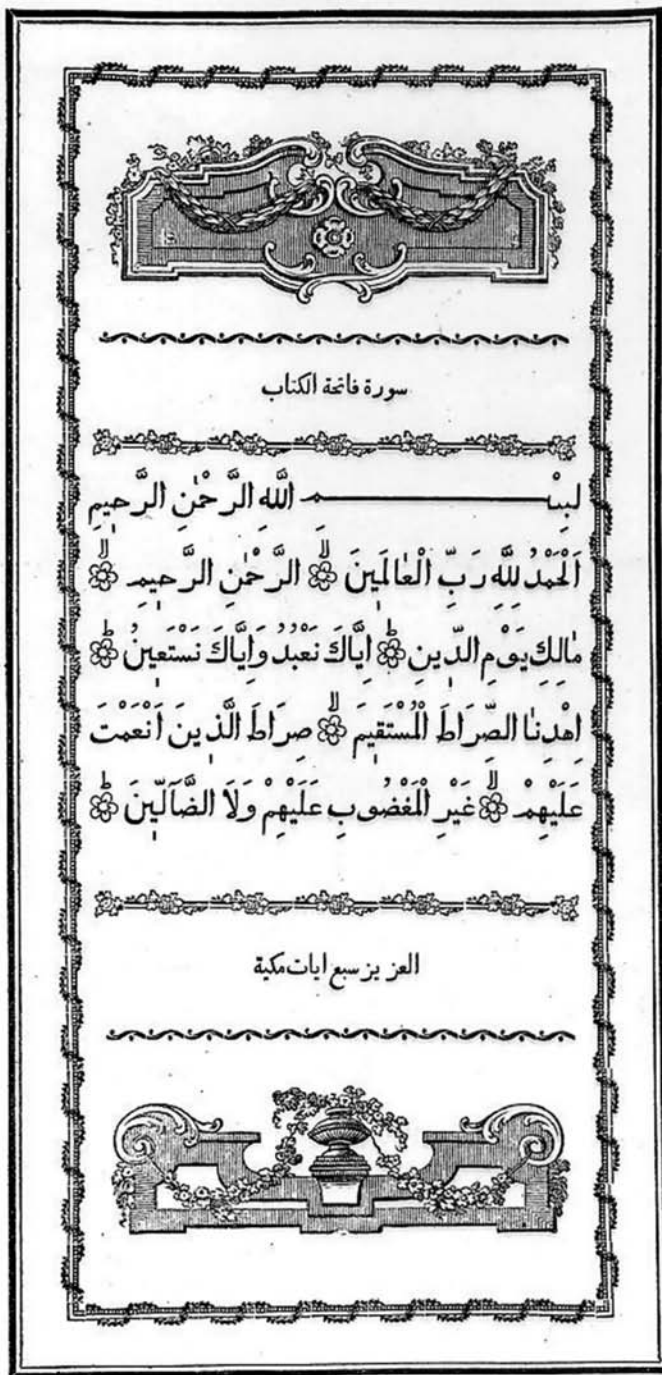 سورة فاتحة الكتاب
بِسْمِ اللّٰهِ الرَّحْمٰنِ الرَّحِيمِ
اَلْحَمْدُ لِلّٰهِ رَبِّ الْعٰالَمِينَ ۙ الرَّحْمٰنِ الرَّحِيمِ ۙ
مٰالِكِ يَوْمِ الدّ۪ينِ ۜ اِيَّاكَ نَعْبُدُ وَاِيَّاكَ نَسْتَع۪ينُ ۜ
اِهْدِنٰا الصِّرَاطَ الْمُسْتَق۪يمَ ۙ صِرَاطَ الَّذ۪ينَ اَنْعَمْتَ
عَلَيْهِمْ ۙ غَيْرِ الْمَغْضُوبِ عَلَيْهِمْ وَلَا الضَّآلّ۪ينَ ۜ
العزيز سبع ايات مكية